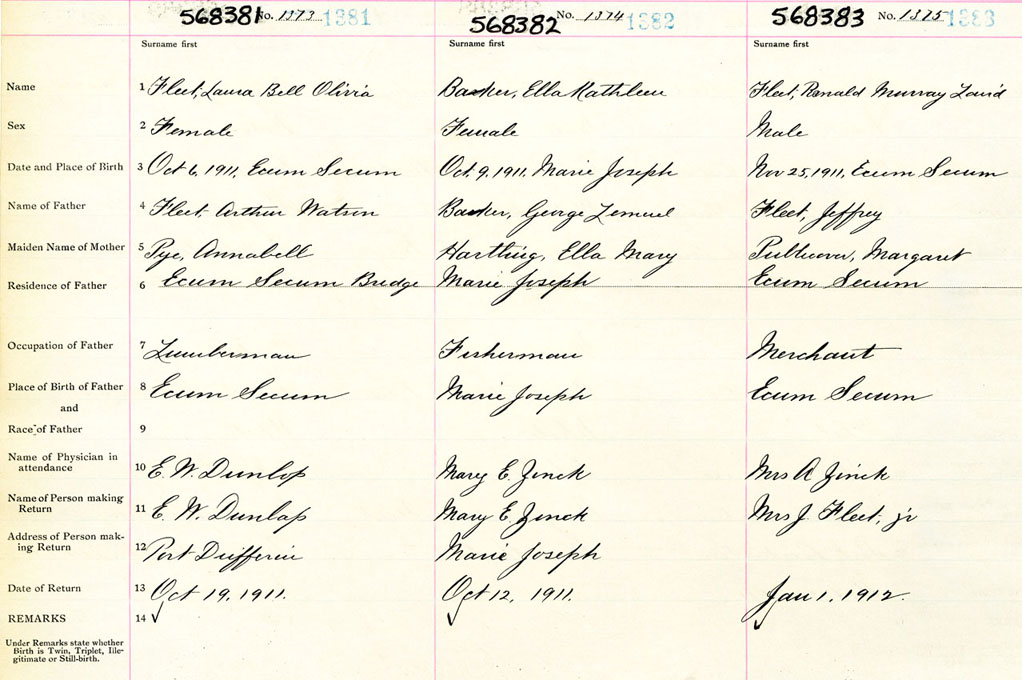 568381 No. 1373 1381 568382 No. 1374 1382 568383 No. 1375 1383
Surname first Surname first Surname first
Name 1 Fleet, Laura Bell Olivia Baker, Ella Kathleen Fleet, Ronald Murray Laird
Sex 2 Female Female Male
Date and Place of Birth 3 Oct 6, 1911, Ecum Secum Oct. 9, 1911, Marie Joseph Nov 25, 1911, Ecum Secum
Name of Father 4 Fleet, Arthur Watson Baker, George Lemuel Fleet, Jeffrey
Maiden Name of Mother 5 Pye, Annabell Hartling, Ella Mary Pulliover, Margaret
Residence of Father 6 Ecum Secum Bridge Marie Joseph Ecum Secum
Occupation of Father 7 Lumberman Fisherman Merchant
Place of Birth of Father 8 Ecum Secum Marie Joseph Ecum Secum
and
Race of Father 9
Name of Physician in
attendance 10 E. W. Dunlop Mary E. Zinck Mrs A Zinck
Name of Person making
Return 11 E. W. Dunlap Mary E. Zinck Mrs J. Fleet, jr
Address of Person mak-
ing Return 12 Port Dufferin Marie Joseph
Date of Return 13 Oct 19, 1911. Oct 12, 1911. Jan 1, 1912.
REMARKS 14 ✓ ✓ ✓
Under Remarks state whether
Birth is Twin, Triplet, Ille-
gitimate or Still-birth.